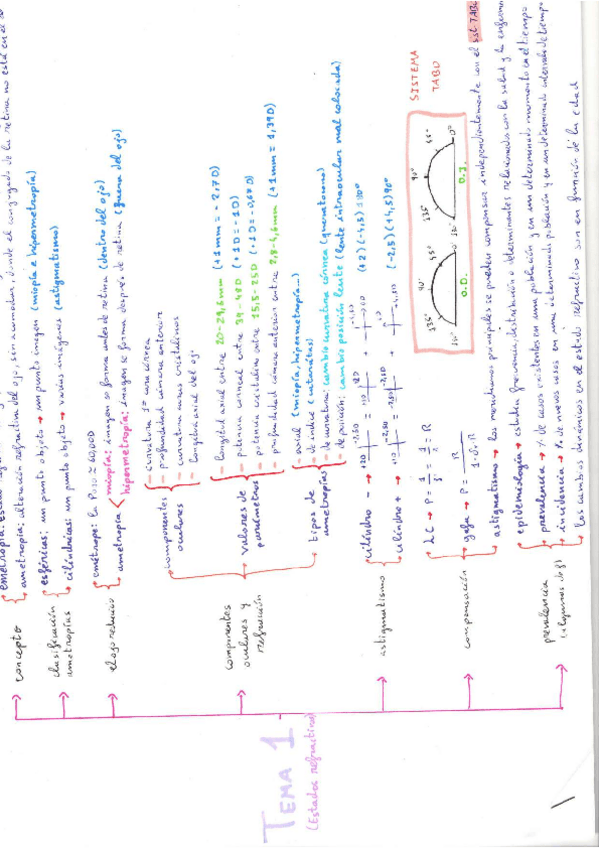 TEMA 1
(Estados refractivos)
concepto
emetropía: estado
ametropía: alteración refractiva del ojo, sin acomodar, donde el conjugado de la retina no está en el
clasificación ametropías
esféricas: un punto objeto → un punto imagen (miopía e hipermetropía)
cilíndricas: un punto objeto → varias imágenes (astigmatismo)
ojo reducido
emétrope: la Pojo ≃ 60,00D
ametropía
miopía: imagen se forma antes de retina (dentro del ojo)
hipermetropía: imagen se forma después de retina (fuera del ojo)
componentes oculares y refracción
componentes oculares
- curvatura 1ª cara córnea
- profundidad cámara anterior
- curvatura caras cristalinos
- longitud axial del ojo
valores de parámetros
- longitud axial entre 20-29,5mm (+1mm = -2,7D)
- potencia corneal entre 39-48D (+1D = -1D)
- potencia cristalino entre 15,5-25D (+1D = -0,67D)
- profundidad cámara anterior entre 2,8-4,6mm (+1mm = 1,39D)
tipos de ametropías
- axial (miopía, hipermetropía...)
- de índice (cataratas)
- de curvatura: cambio curvatura córnea (queratocono)
- de posición: cambio posición lente (lente intraocular mal colocada)
astigmatismo
cilindro - →
(+2) (-4,5) 180°
cilindro + →
(-2,5) (+4,5) 90°
compensación
LC → P = 1/f' = 1/r = R
gafa → P = R / 1+δv·R
SISTEMA TABO
135° 90° 45°
180° 0°
O.D.
135° 90° 45°
180° 0°
O.I.
astigmatismo → los meridianos principales se pueden compensar independientemente con el sist TABO
prevalencia
epidemiología → estudia frecuencia, distribución o determinantes relacionado con la salud y la enfermedad
prevalencia → % de casos existentes en una población y en un determinado momento en el tiempo
incidencia → % de nuevos casos en una determinada población y en un determinado intervalo de tiempo
los cambios dinámicos en el estado refractivo son en función de la edad